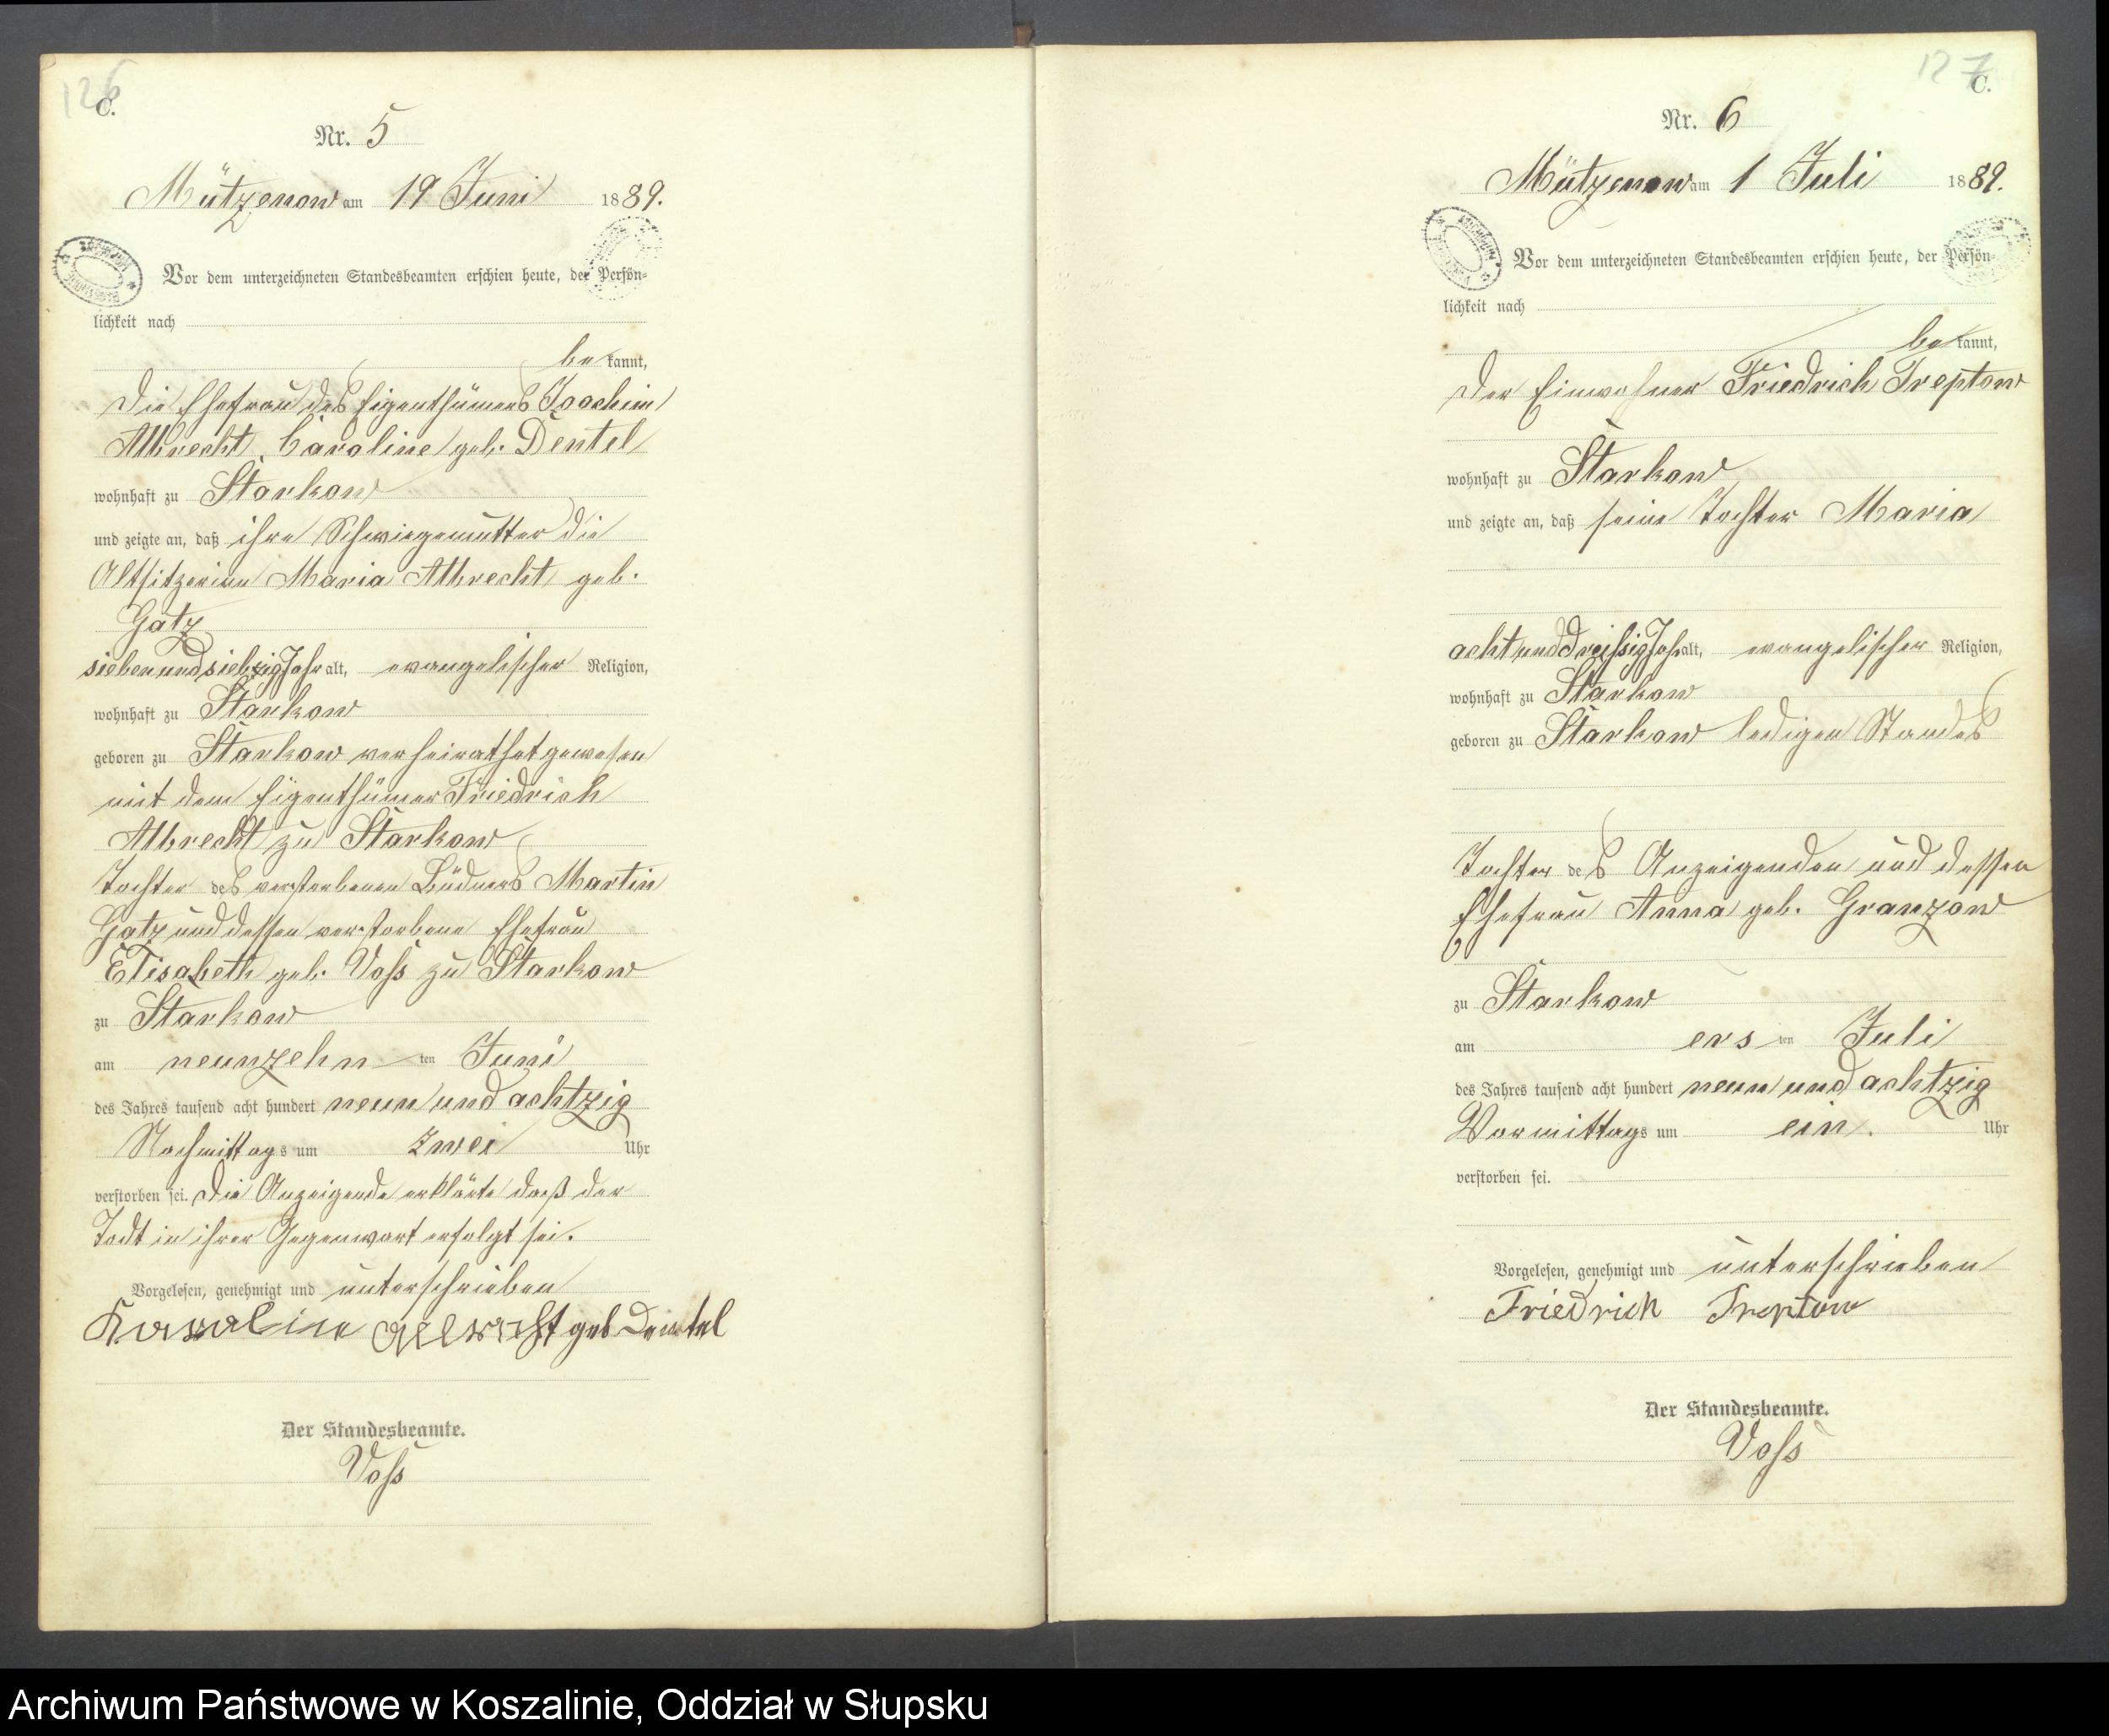 126
C.
Nr. 5
Mützenow am 19 Juni 1889.
Vor dem unterzeichneten Standesbeamten erschien heute, der Persön-
lichkeit nach
be kannt,
die Ehefrau des Eigenthümers Joachim
Albrecht, Caroline geb. Dentel
wohnhaft zu Starkow
und zeigte an, daß ihre Schwiegemutter die
Altsitzerinn Maria Albrecht geb.
Gatz
siebenundsiebzig Jahr alt, evangelischer Religion,
wohnhaft zu Starkow
geboren zu Starkow verheirathet gewesen
mit dem Eigenthümer Friedrich
Albrecht zu Starkow
Tochter des verstorbenen Büdners Martin
Gatz und dessen verstorbene Ehefrau
Elisabeth geb. Voß zu Starkow
zu Starkow
am neunzehn ten Juni
des Jahres tausend acht hundert neun und achtzig
Nachmittags um zwei Uhr
verstorben sei. Die Anzeigende erklärte daß der
Todt in ihrer Gegenwart erfolgt sei.
Vorgelesen, genehmigt und unterschrieben
Karaline Albrecht geb Dentel
Der Standesbeamte.
Voß
127
C.
Nr. 6
Mützenow am 1 Juli 1889.
Vor dem unterzeichneten Standesbeamten erschien heute, der Persön-
lichkeit nach
be kannt,
der Einwohner Friedrich Treptow
wohnhaft zu Starkow
und zeigte an, daß seine Tochter Maria
acht und dreißig Jahr alt, evangelischer Religion,
wohnhaft zu Starkow
geboren zu Starkow ledigen Standes
Tochter des Anzeigenden und dessen
Ehefrau Anna geb. Granzow
zu Starkow
am ers ten Juli
des Jahres tausend acht hundert neun und achtzig
Vormittags um ein. Uhr
verstorben sei.
Vorgelesen, genehmigt und unterschrieben
Friedrich Treptow
Der Standesbeamte.
Voß
Archiwum Państwowe w Koszalinie, Oddział w Słupsku